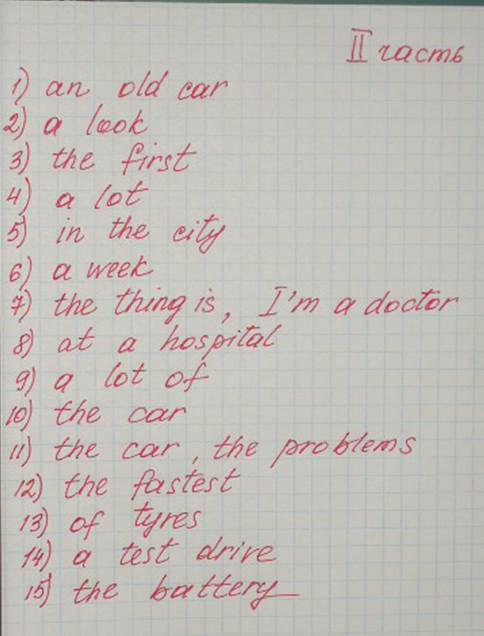 II часть
1) an old car
2) a look
3) the first
4) a lot
5) in the city
6) a week
7) the thing is, I'm a doctor
8) at a hospital
9) a lot of
10) the car
11) the car, the problems
12) the fastest
13) of tyres
14) a test drive
15) the battery